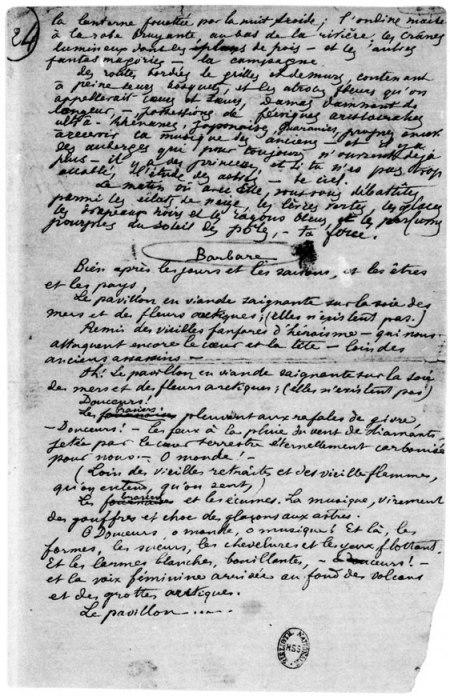 24)
la lanterne fouettée par la nuit froide ; l'ondine niaise
à la robe bruyante, au bas de la rivière ; les crânes
lumineux dans les plans de pois – et les autres
fantasmagories – la campagne.
Des routes bordées de grilles et de murs, contenant
à peine leurs bosquets, et les atroces fleurs qu'on
appellerait cœurs et sœurs, Damas damnant de
longueur, – possessions de féeriques aristocraties
ultra-Rhénanes, Japonaises, Guaranies, propres encore
à recevoir la musique des anciens – et il y a
des auberges qui pour toujours n'ouvrent déjà
plus – il y a des princesses, et si tu n'es pas trop
accablé, l'étude des astres – le ciel.
Le matin où avec Elle, vous vous débattîtes
parmi les éclats de neige, les lèvres vertes, les glaces,
les drapeaux noirs et les rayons bleus, et les parfums
pourpres du soleil des pôles, – ta force.
Barbare
Bien après les jours et les saisons, et les êtres
et les pays,
Le pavillon en viande saignante sur la soie des
mers et des fleurs arctiques ; (elles n'existent pas.)
Remis des vieilles fanfares d'héroïsme – qui nous
attaquent encore le cœur et la tête – loin des
anciens assassins –
Oh ! Le pavillon en viande saignante sur la soie
des mers et des fleurs arctiques ; (elles n'existent pas)
Douceurs !
brasiers,
Les fournaises pleuvant aux rafales de givre,
– Douceurs ! – les feux à la pluie du vent de diamants
jetée par le cœur terrestre éternellement carbonisé
pour nous. – O monde ! –
(Loin des vieilles retraites et des vieilles flammes,
qu'on entend, qu'on sent,)
brasiers
Les fournaises et les écumes. La musique, virement
des gouffres et choc des glaçons aux astres.
O Douceurs, o monde, o musique ! Et là, les
formes, les sueurs, les chevelures et les yeux, flottant.
Et les larmes blanches, bouillantes, – o douceurs ! –
et la voix féminine arrivée au fond des volcans
et des grottes arctiques.
Le pavillon . . . . .
MSS